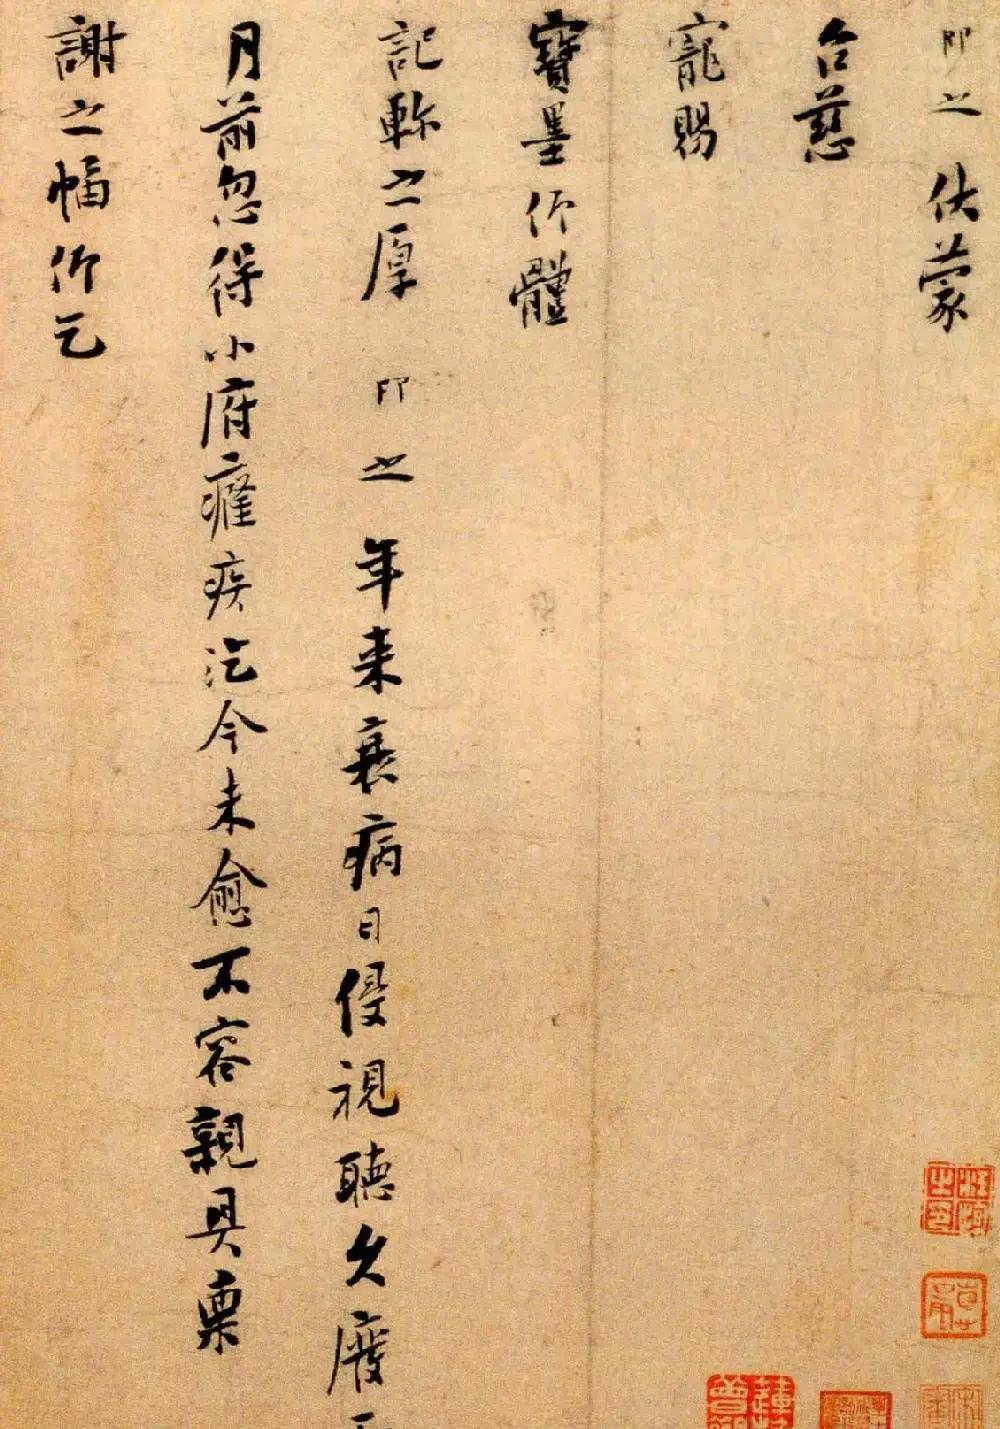 即之伏蒙
台慈
寵賜
寶墨仰體
記軫之厚即之年来衰病日侵視聴久廢
月前忽得小府癃疾迄今未愈不容親具稟
謝之幅仰乞